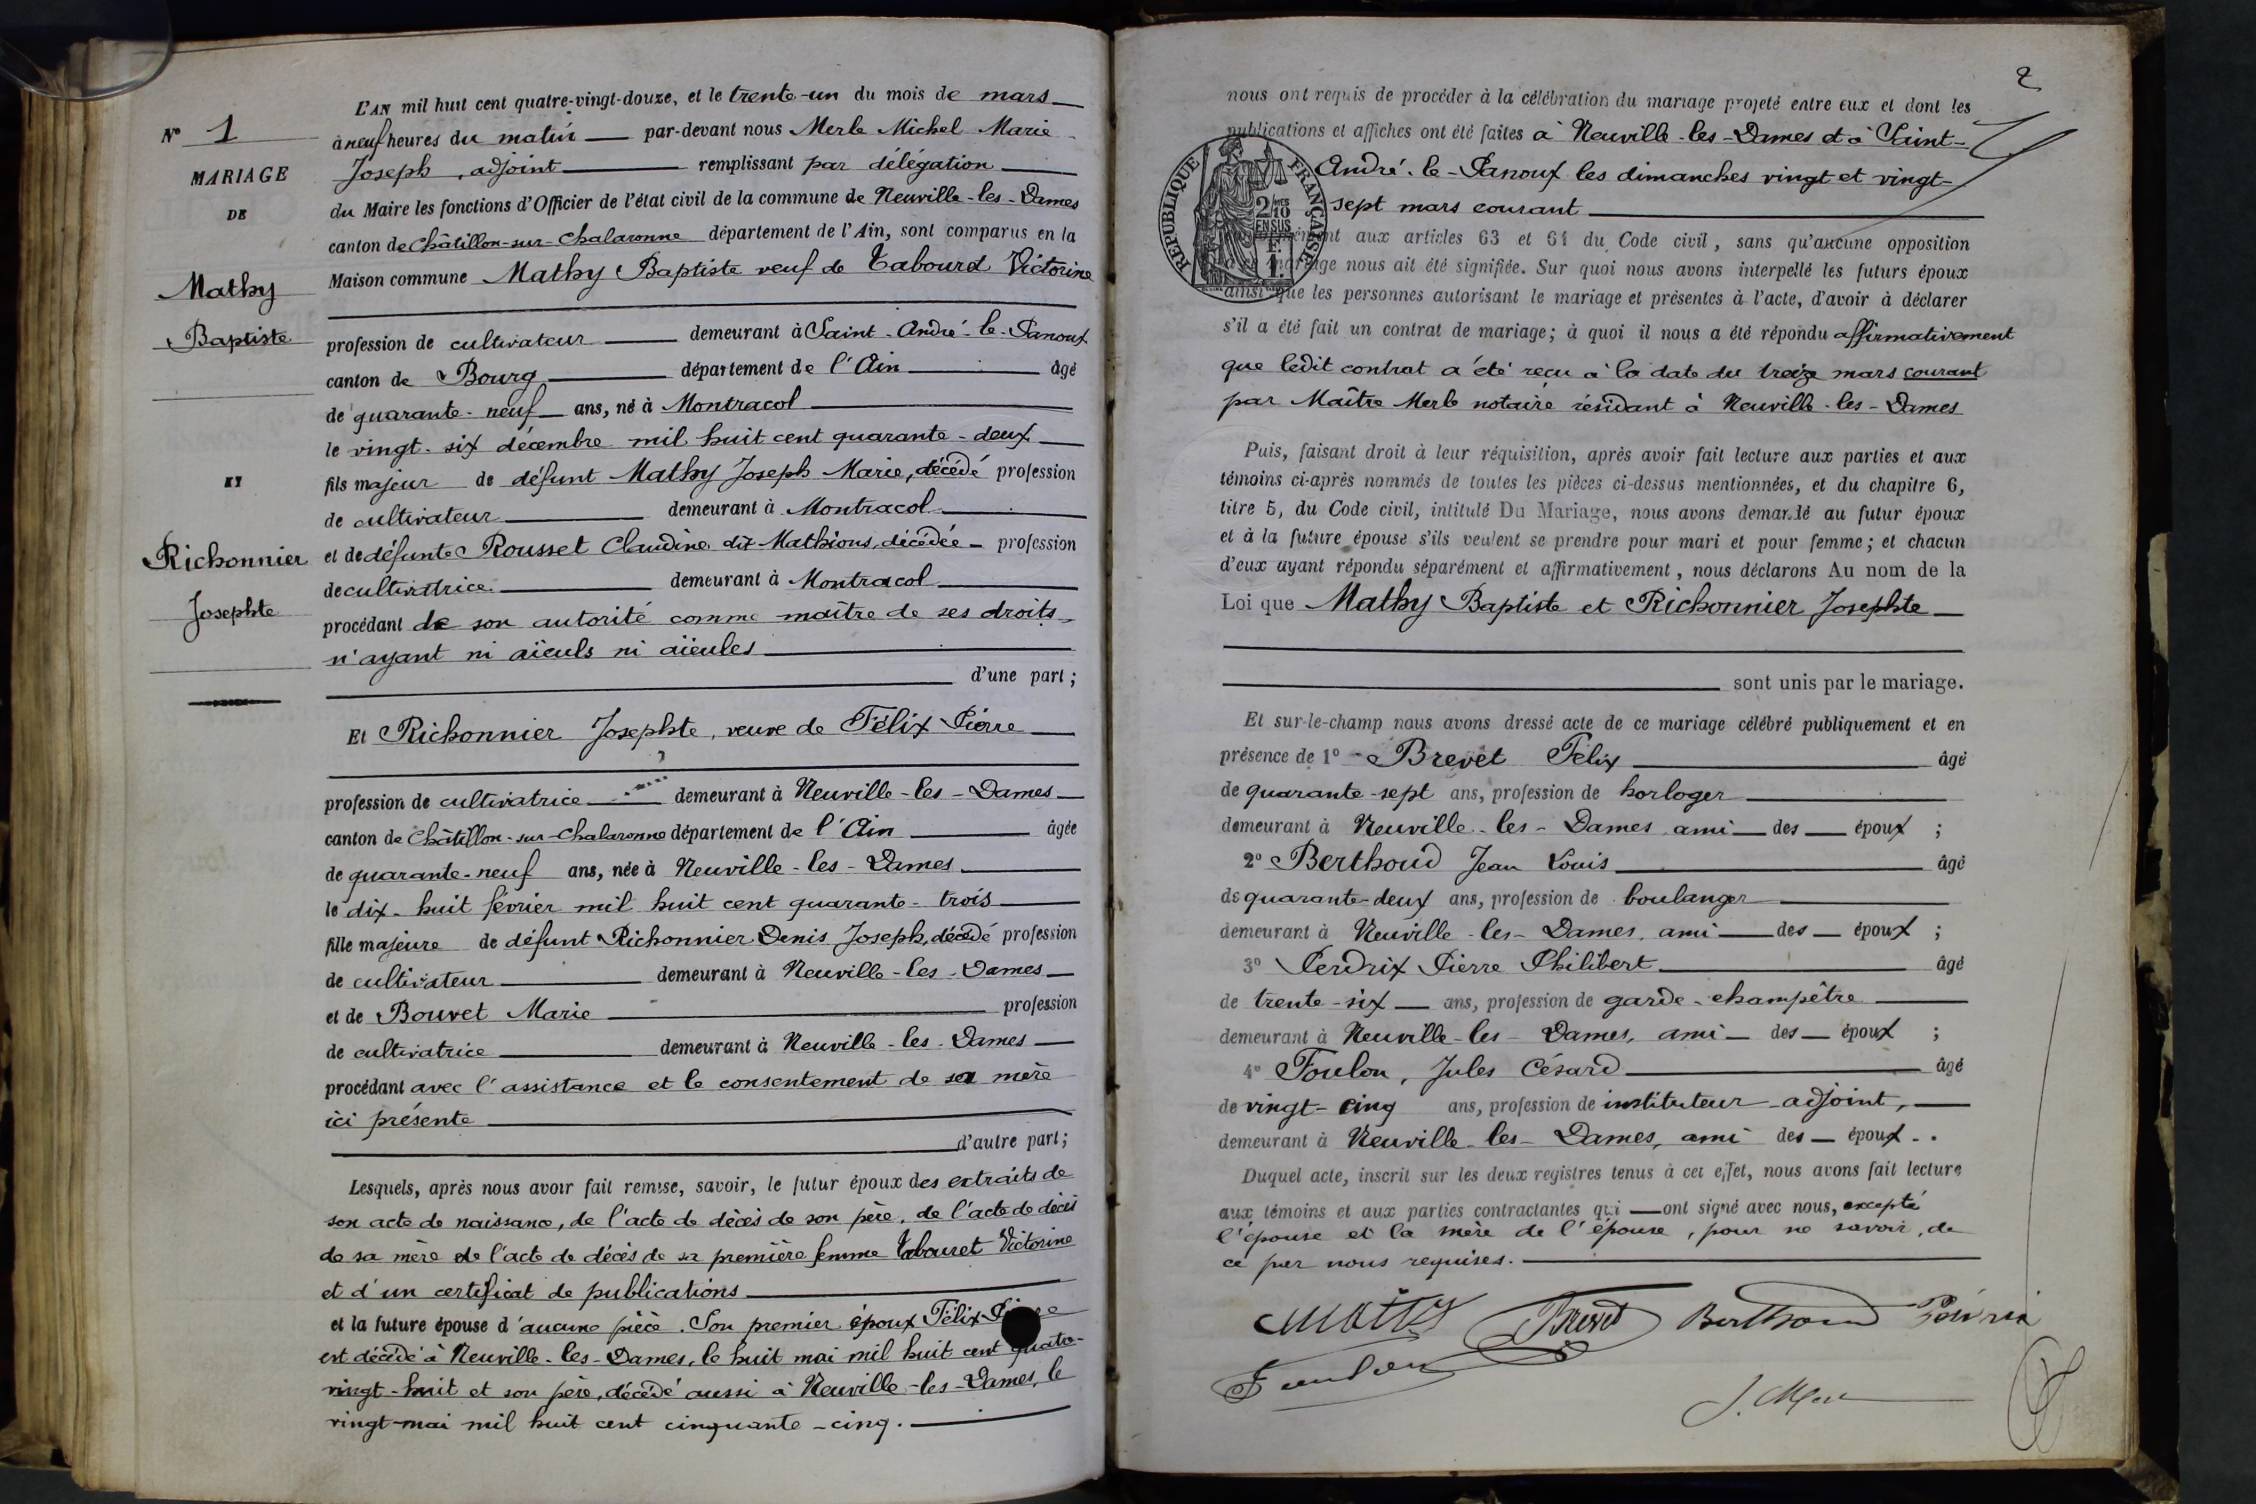 L'AN mil huit cent quatre-vingt-douze, et le trente-un du mois de mars
N° 1
à neuf heures du matin par-devant nous Merle Michel Marie
MARIAGE
Joseph, adjoint remplissant par délégation
DE
du Maire les fonctions d'Officier de l'état civil de la commune de Neuville-les-Dames
canton de Châtillon-sur-Chalaronne département de l'Ain, sont comparus en la
Mathy
Maison commune Mathy Baptiste veuf de Tabouret Victorine
Baptiste
profession de cultivateur demeurant à Saint-André-le-Panoux
canton de Bourg département de l'Ain âgé
de quarante-neuf ans, né à Montracol
le vingt-six décembre mil huit cent quarante-deux
ET
fils majeur de défunt Mathy Joseph Marie, décédé profession
de cultivateur demeurant à Montracol
Richonnier
et de défunte Rousset Claudine dit Mathious, décédée profession
de cultivatrice demeurant à Montracol
Josephte
procédant de son autorité comme maître de ses droits,
n'ayant ni aïeuls ni aïeules
d'une part;
Et Richonnier Josephte, veuve de Félix Pierre
profession de cultivatrice demeurant à Neuville-les-Dames
canton de Châtillon-sur-Chalaronne département de l'Ain âgée
de quarante-neuf ans, née à Neuville-les-Dames
le dix-huit février mil huit cent quarante-trois
fille majeure de défunt Richonnier Denis Joseph, décédé profession
de cultivateur demeurant à Neuville-les-Dames
et de Bouvet Marie profession
de cultivatrice demeurant à Neuville-les-Dames
procédant avec l'assistance et le consentement de sa mère
ici présente
d'autre part;
Lesquels, après nous avoir fait remise, savoir, le futur époux des extraits de
son acte de naissance, de l'acte de décès de son père, de l'acte de décès
de sa mère de l'acte de décès de sa première femme Tabouret Victorine
et d'un certificat de publications
et la future épouse d'aucune pièce. Son premier époux Félix Pierre
est décédé à Neuville-les-Dames, le huit mai mil huit cent quatre-
vingt-huit et son père, décédé aussi à Neuville-les-Dames, le
vingt mai mil huit cent cinquante-cinq.
2
nous ont requis de procéder à la célébration du mariage projeté entre eux et dont les
publications et affiches ont été faites à Neuville-les-Dames et à Saint-
André-le-Panoux les dimanches vingt et vingt-
sept mars courant
RÉPUBLIQUE FRANÇAISE
2/10 EN SUS
F. 1.
aux articles 63 et 64 du Code civil, sans qu'aucune opposition
mariage nous ait été signifiée. Sur quoi nous avons interpellé les futurs époux
ainsi que les personnes autorisant le mariage et présentes à l'acte, d'avoir à déclarer
s'il a été fait un contrat de mariage; à quoi il nous a été répondu affirmativement
que ledit contrat a été reçu à la date du treize mars courant
par Maître Merle notaire résidant à Neuville-les-Dames
Puis, faisant droit à leur réquisition, après avoir fait lecture aux parties et aux
témoins ci-après nommés de toutes les pièces ci-dessus mentionnées, et du chapitre 6,
titre 5, du Code civil, intitulé Du Mariage, nous avons demandé au futur époux
et à la future épouse s'ils veulent se prendre pour mari et pour femme; et chacun
d'eux ayant répondu séparément et affirmativement, nous déclarons Au nom de la
Loi que Mathy Baptiste et Richonnier Josephte
sont unis par le mariage.
Et sur-le-champ nous avons dressé acte de ce mariage célébré publiquement et en
présence de 1° Brevet Félix âgé
de quarante-sept ans, profession de horloger
demeurant à Neuville-les-Dames ami des époux;
2° Berthoud Jean Louis âgé
de quarante-deux ans, profession de boulanger
demeurant à Neuville-les-Dames, ami des époux;
3° Perdrix Pierre Philibert âgé
de trente-six ans, profession de garde-champêtre
demeurant à Neuville-les-Dames, ami des époux;
4° Foulon, Jules Césard âgé
de vingt-cinq ans, profession de instituteur-adjoint,
demeurant à Neuville-les-Dames, ami des époux.
Duquel acte, inscrit sur les deux registres tenus à cet effet, nous avons fait lecture
aux témoins et aux parties contractantes qui ont signé avec nous, excepté
l'épouse et la mère de l'épouse, pour ne savoir, de
ce par nous requises.
Mathy Brevet Berthoud Perdrix
Foulon
J. Merle